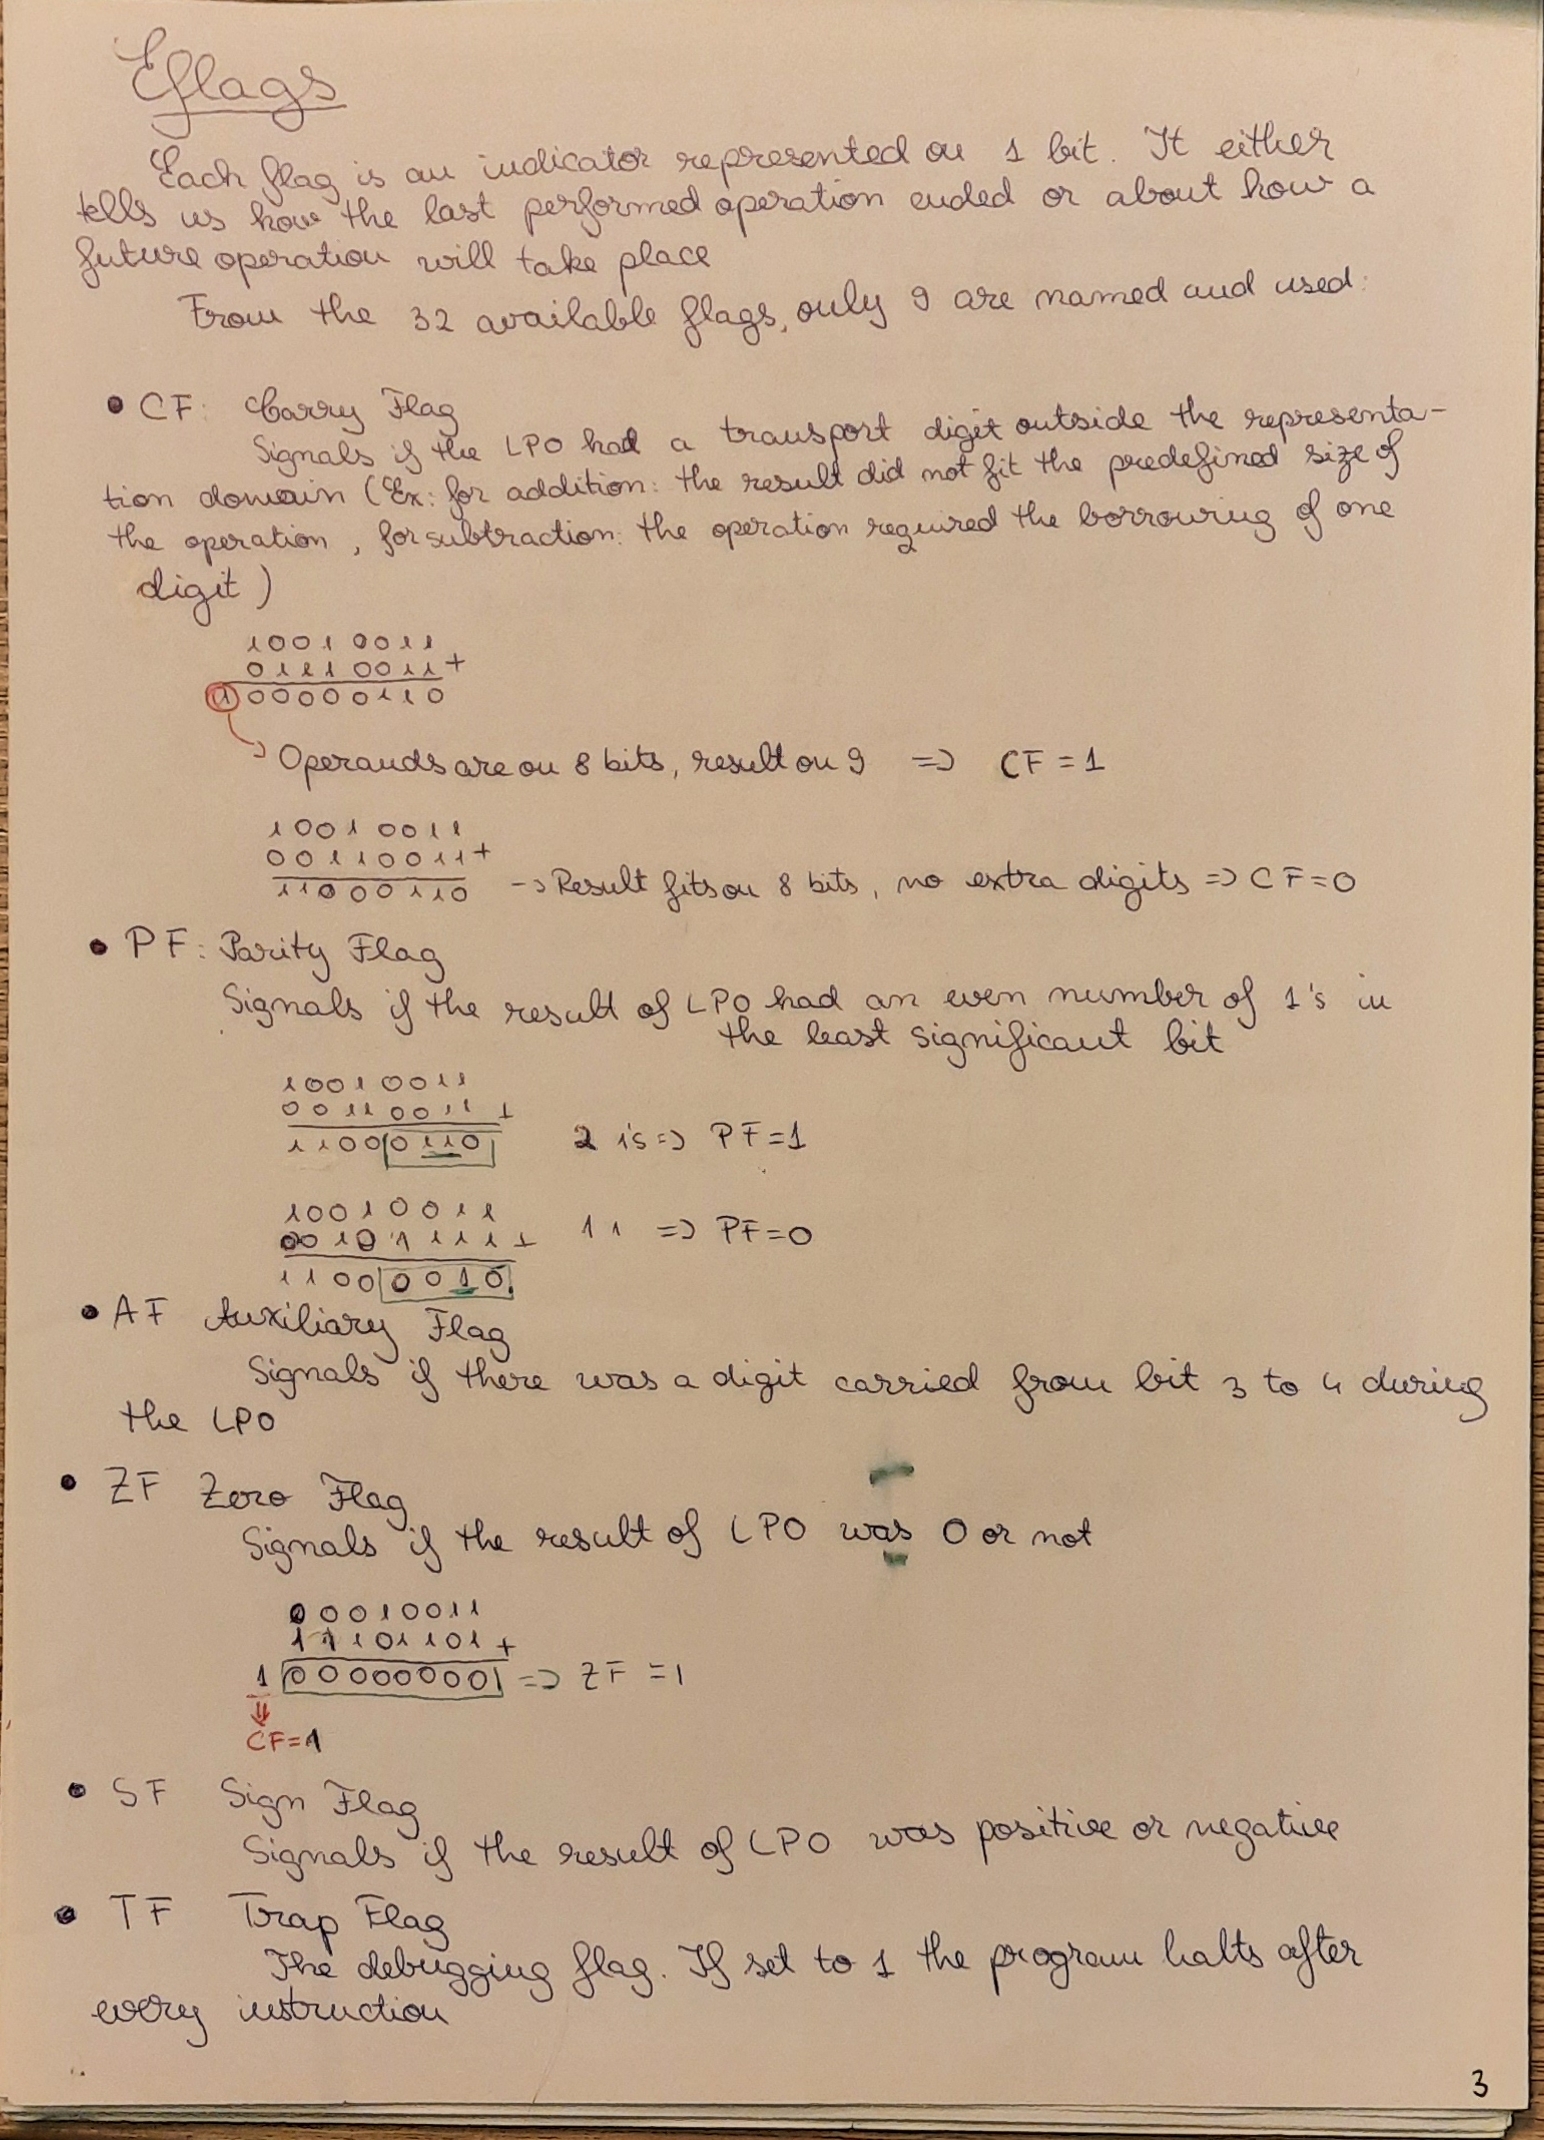 Eflags
Each flag is an indicator represented on 1 bit. It either
tells us how the last performed operation ended or about how a
future operation will take place
From the 32 available flags, only 9 are named and used:
• CF: Carry Flag
Signals if the LPO had a transport digit outside the representa-
tion domain (Ex: for addition: the result did not fit the predefined size of
the operation, for subtraction: the operation required the borrowing of one
digit)
1001 0011
0111 0011 +
1 00000110
Operands are on 8 bits, result on 9 => CF = 1
1001 0011
00110011 +
11000110 -> Result fits on 8 bits, no extra digits => CF=0
• PF: Parity Flag
Signals if the result of LPO had an even number of 1's in
the least significant bit
1001 0011
0011 0011 +
11000110 2 1's => PF=1
1001 0011
0010 1111 +
1100 0010 1 1 => PF=0
• AF Auxiliary Flag
Signals if there was a digit carried from bit 3 to 4 during
the LPO
• ZF Zero Flag
Signals if the result of LPO was 0 or not
00010011
11101101 +
1 00000000 => ZF = 1
CF=1
• SF Sign Flag
Signals if the result of LPO was positive or negative
• TF Trap Flag
The debugging flag. If set to 1 the program halts after
every instruction
3